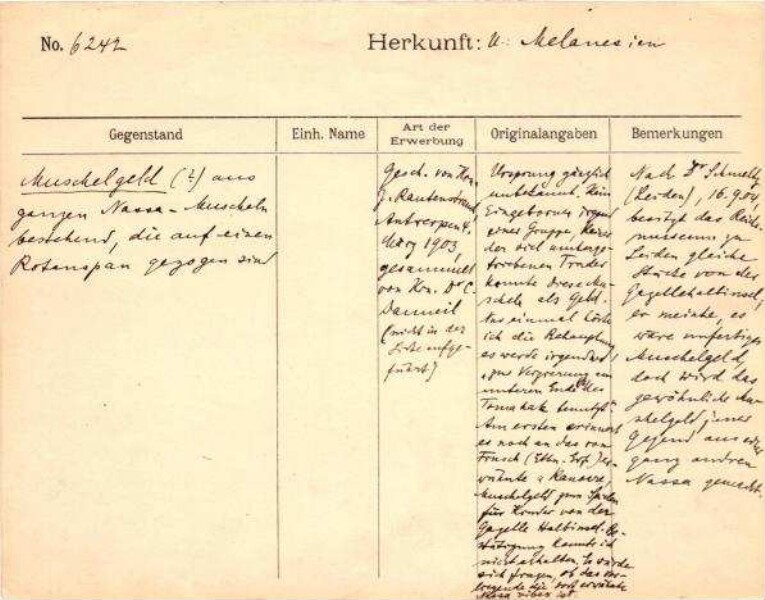 No. 6242
Herkunft: U: Melanesien
Gegenstand
Muschelgeld (?) aus
ganzen Nassa-Muscheln
bestehend, die auf einen
Rotanspan gezogen sind
Einh. Name
Art der
Erwerbung
Gesch. von Hrn.
J. Rautenstrauch,
Antwerpen 4.
März 1903,
gesammelt
von Hrn. Dr C.
Danneil
(nicht in der
Liste aufge-
führt)
Originalangaben
Ursprung gänzlich
unbekannt. Kein
Eingeborner irgend
einer Gruppe, keiner
der viel umherge-
triebenen Trader
kannte diese Mu-
scheln als Geld.
Nur einmal hörte
ich die Behauptung
es werde irgendwo
"zur Verzierung am
unteren Ende des
Tomahak benutzt".
Am ersten erinnert
es noch an das von
Finsch (Ethn. Erf.) er-
wähnte
Muschelgeld zum Spielen
für Kinder von der
Gazelle Halbinsel. Be-
stätigung konnte ich
nicht erhalten. Es würde
sich fragen, ob das vor-
liegende die dort erwähnte
Nassa vibex ist.
Bemerkungen
Nach Dr Schmeltz
(Leiden), 16.9.04,
besitzt das Reichs-
museum zu
Leiden gleiche
Stücke von der
Gazellehalbinsel;
er meinte, es
wäre unfertiges
Muschelgeld,
doch wird das
gewöhnliche Mu-
schelgeld jener
Gegend aus einer
ganz andren
Nassa gemacht.